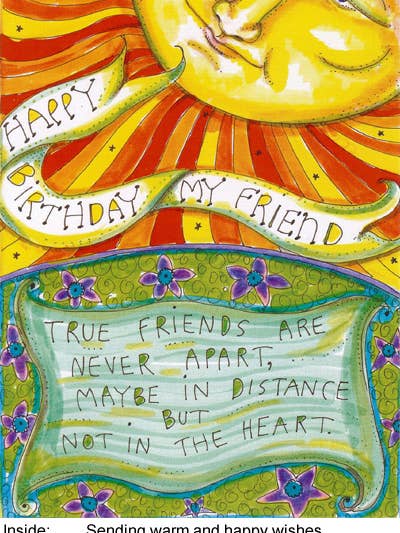 HAPPY
BIRTHDAY MY FRIEND
TRUE FRIENDS ARE
NEVER APART,
MAYBE IN DISTANCE
BUT
NOT IN THE HEART.
Inside: Sending warm and happy wishes